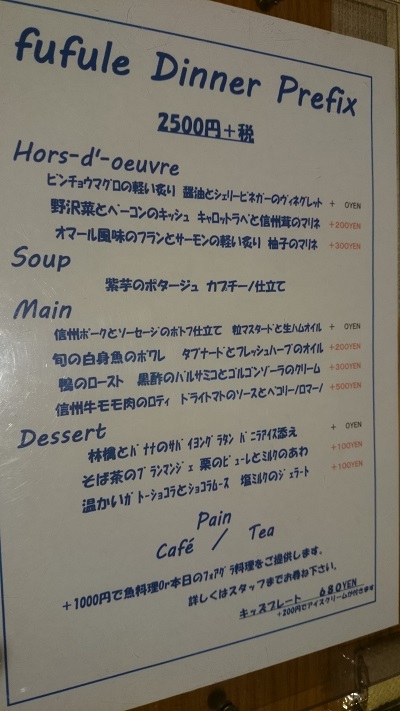 fufule Dinner Prefix
2500円+税
Hors-d'-oeuvre
ビンチョウマグロの軽い炙り 醤油とシェリービネガーのヴィネグレット + 0YEN
野沢菜とベーコンのキッシュ キャロットラペと信州茸のマリネ +200YEN
オマール風味のフランとサーモンの軽い炙り 柚子のマリネ +300YEN
Soup
紫芋のポタージュ カプチーノ仕立て
Main
信州ポークとソーセージのポトフ仕立て 粒マスタードと生ハムオイル + 0YEN
旬の白身魚のポワレ タプナードとフレッシュハーブのオイル +200YEN
鴨のロースト 黒酢のバルサミコとゴルゴンゾーラのクリーム +300YEN
信州牛モモ肉のロティ ドライトマトのソースとペコリーノロマーノ +500YEN
Dessert
林檎とバナナのサバイヨングラタン バニラアイス添え + 0YEN
そば茶のブランマンジェ 栗のピューレとミルクのあわ +100YEN
温かいガトーショコラとショコラムース 塩ミルクのジェラート +100YEN
Pain
Café / Tea
+1000円で魚料理Or本日のフォアグラ料理をご提供します。
詳しくはスタッフまでお尋ね下さい。
キッズプレート 680YEN
+200円でアイスクリームが付きます